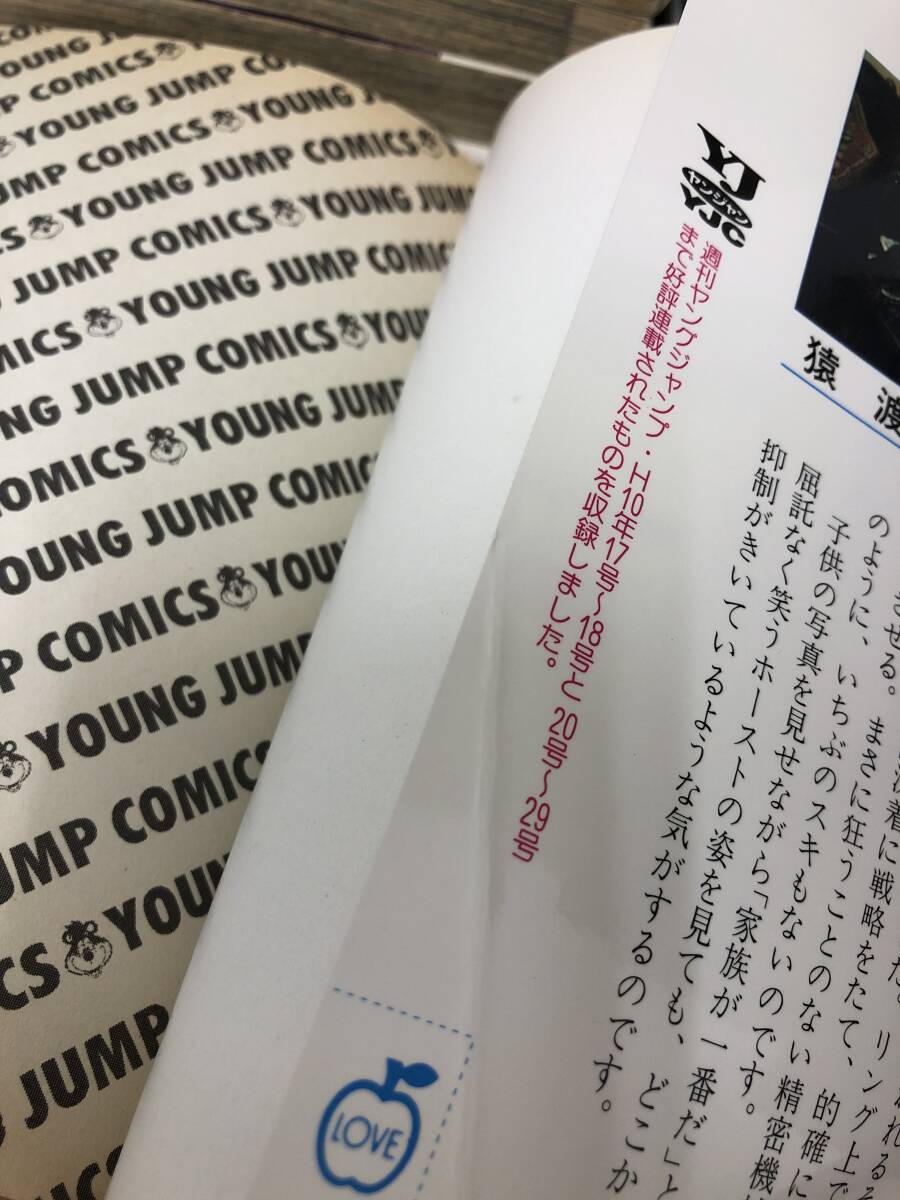 YOUNG JUMP COMICS
YOUNG JUMP COMICS YOUNG J
UMP COMICS YOUNG JUMP COMICS
YOUNG JUMP COMICS YOUNG JUM
CS YOUNG JUMP COMICS
JUMP COMICS YOUNG JUMP COMIC
MICS YOUNG JUMP COMICS YOU
NG JUMP COMICS YOUNG JUMP
COMICS YOUNG JUMP
OUNG JUMP COMICS
P COMICS YOUN
YOUNG JUMP
JUMP COMICS
CS YOUN
JUMP
YJ
ヤンジャン
YJC
週刊ヤングジャンプ・H10年17号〜18号と20号〜29号
まで好評連載されたものを収録しました。
猿渡
リング上で
着に戦略をたて、的確に
させる。まさに狂うことのない精密機
のように、いちぶのスキもないのです。
子供の写真を見せながら「家族が一番だ」と
屈託なく笑うホーストの姿を見ても、どこか
抑制がきいているような気がするのです。
LOVE